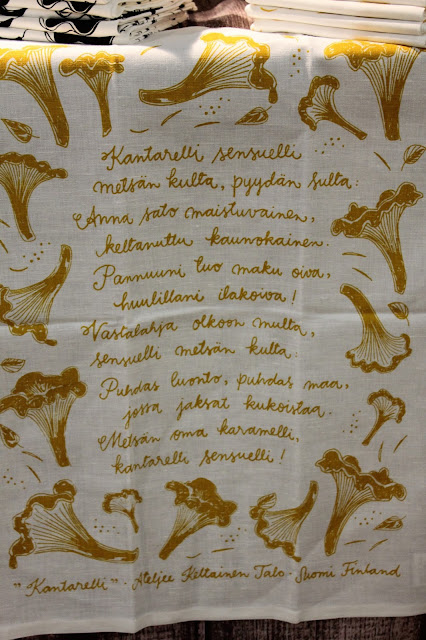 Kantarelli sensuelli
metsän kulta, pyydän sulta:
Anna sato maistuvainen,
keltanuttu kaunokainen.
Pannuuni luo maku oiva,
huulillani ilakoiva!
Vastalahja olkoon multa,
sensuelli metsän kulta:
Puhdas luonto, puhdas maa,
jossa jaksat kukoistaa.
Metsän oma karamelli,
kantarelli sensuelli!
"Kantarelli" · Ateljee Keltainen Talo · Suomi Finland